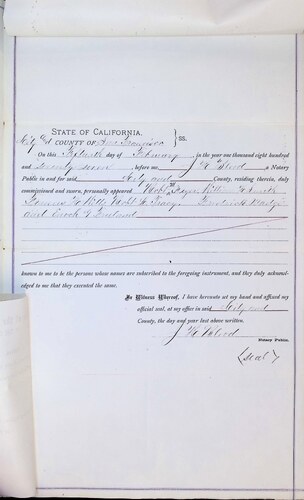 STATE OF CALIFORNIA,
City & COUNTY OF San Francisco } SS.
On this day of February in the year one thousand eight hundred
and seventy before me, J H Blood a Notary
Public in and for said City and County, residing therein, duly
commissioned and sworn, personally appeared Robt William Smith
Robt F.
and Enoch
known to me to be the persons whose names are subscribed to the foregoing instrument, and they duly acknowl-
edged to me that they executed the same.
In Witness Whereof, I have hereunto set my hand and affixed my
official seal, at my office in said City and
County, the day and year last above written.
J H Blood
Notary Public.
(seal)